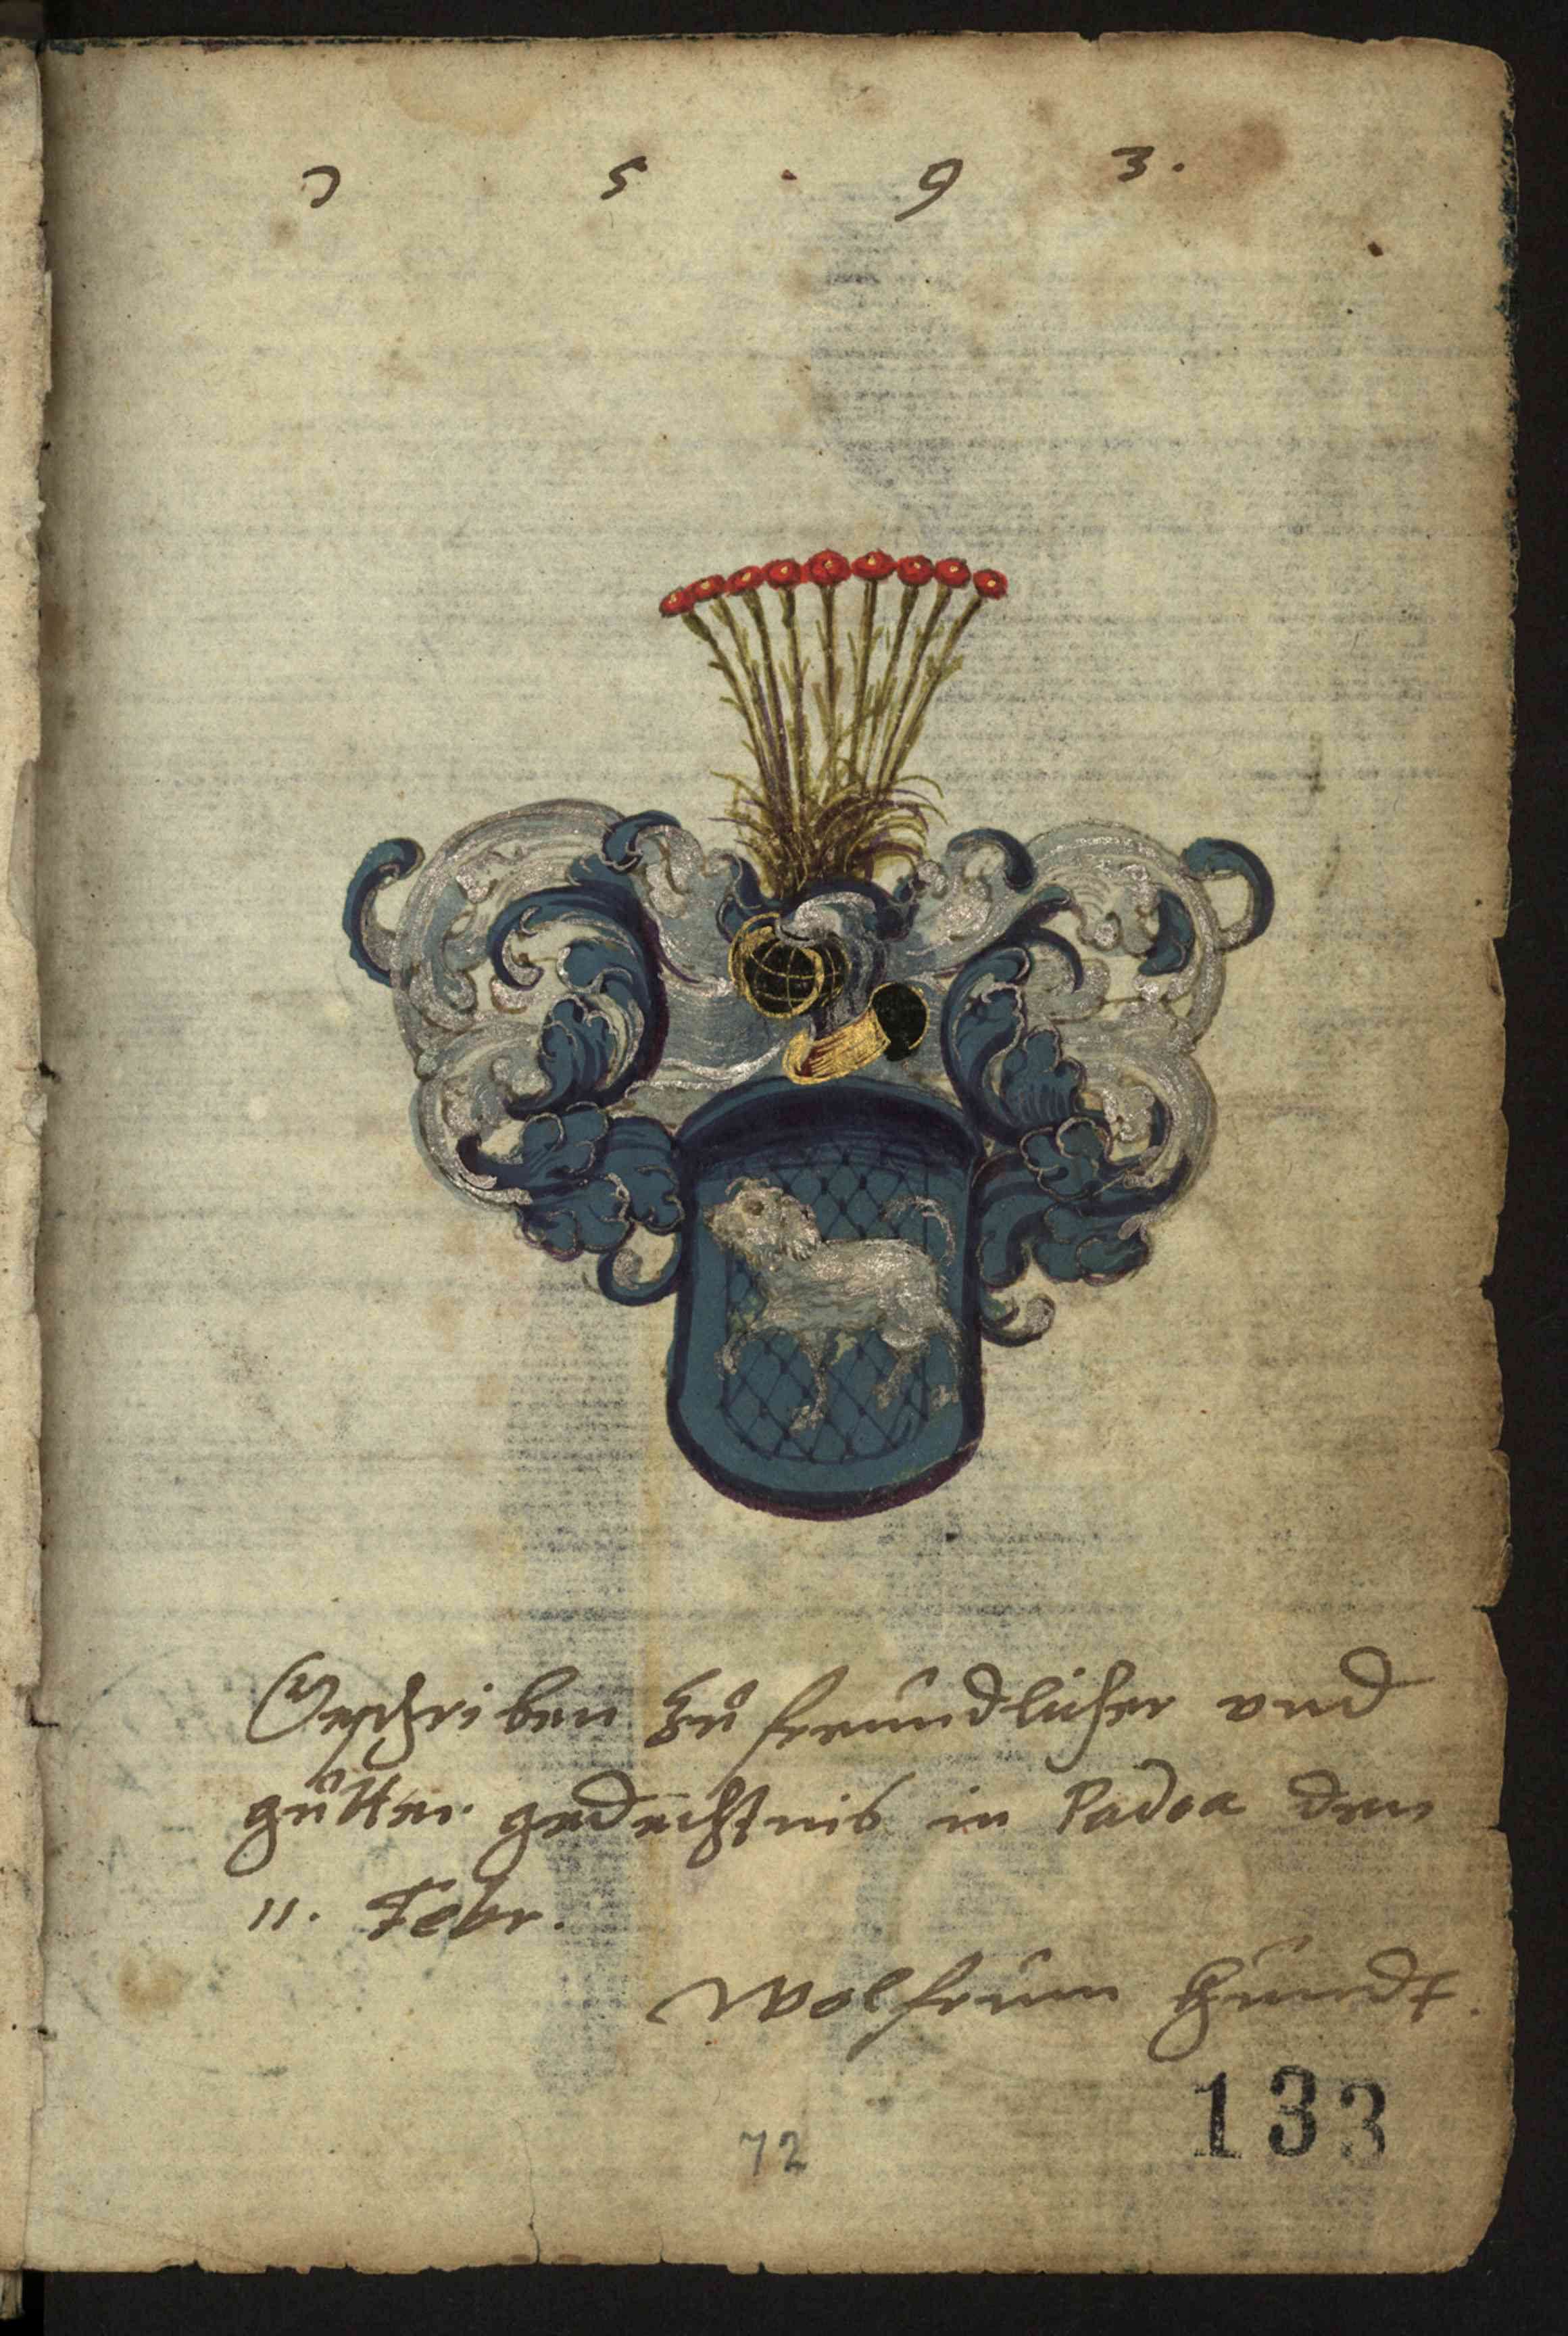 1 5 . 9 3.
Geschriben zů freündlicher vnd
gůtter gedechtnis in Padoa den
11. Febr.
Wolfrum Hündt.
133
72